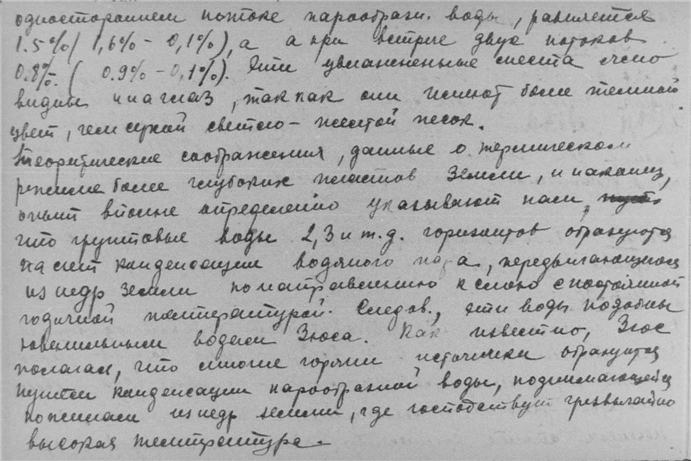 одностороннем потоке парообразн. воды, равняется
1.5%( 1,6% - 0,1%), а а при встрече двух потоков
0.8%. ( 0.9% - 0,1%). Эти увлажненные места ясно
видны и на глаз, так как они имеют более темный
цвет, чем сухой светло-желтый песок.
Теоритические соображения, данные о термическом
режиме более глубоких пластов Земли, и наконец,
опыт вполне определенно указывают нам,
что грунтовые воды 2, 3 и т.д. горизонтов образуются
на счет конденсации водяного пара, передвигающегося
из недр земли по направлению к слою с постоянной
годичной температурой. Следов., эти воды подобны
ювенильным водам Зюса. Как известно, Зюс
полагал, что многие горячие источники образуются
путем конденсации парообразной воды, поднимающейся
по жилам из недр земли, где господствует чрезвычайно
высокая температура.